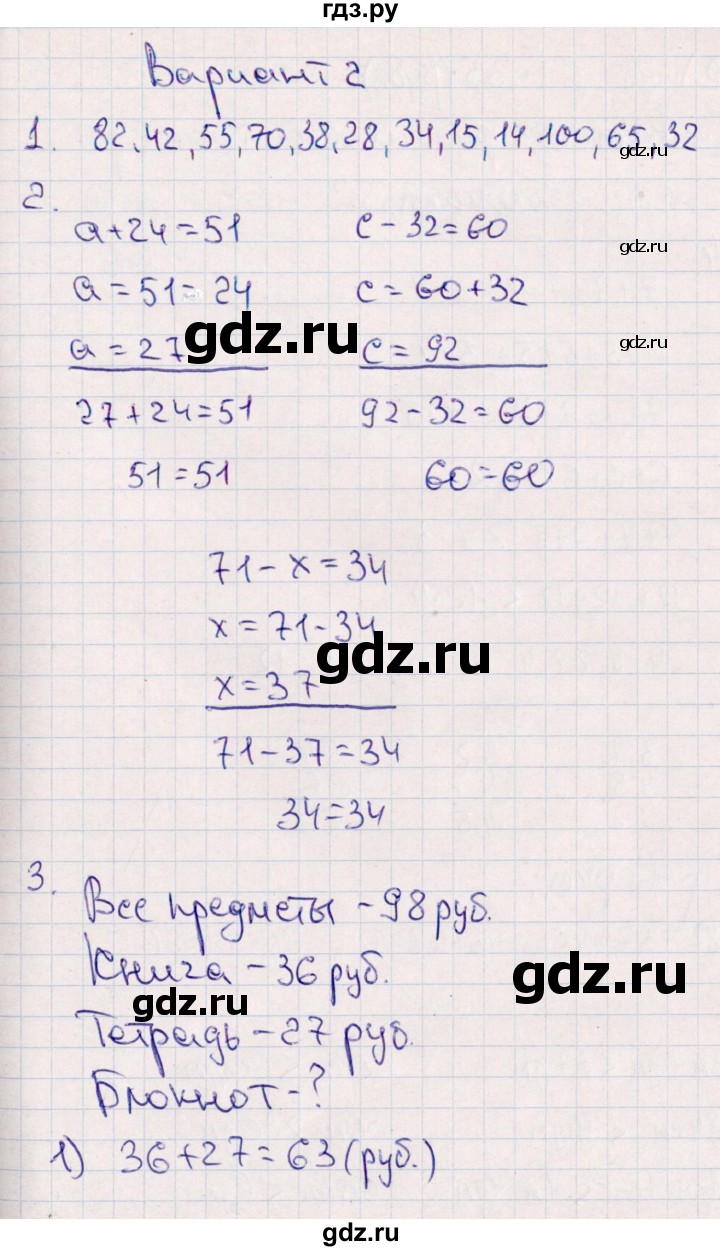 гдз.ру
Вариант 2
1. 82, 42, 55, 70, 38, 28, 34, 15, 14, 100, 65, 32
gdz.ru
2.
a + 24 = 51 c - 32 = 60
gdz.ru
a = 51 = 24 c = 60 + 32
gdz.ru
a = 27 c = 92
gdz.ru
27 + 24 = 51 92 - 32 = 60
51 = 51 60 = 60
71 - x = 34
x = 71 - 34
gdz.ru
x = 37
71 - 37 = 34
34 = 34
3.
Все предметы - 98 руб.
Книга - 36 руб.
gdz.ru
gdz.ru
Тетрадь - 27 руб.
Блокнот - ?
1) 36 + 27 = 63 (руб.)
gdz.ru